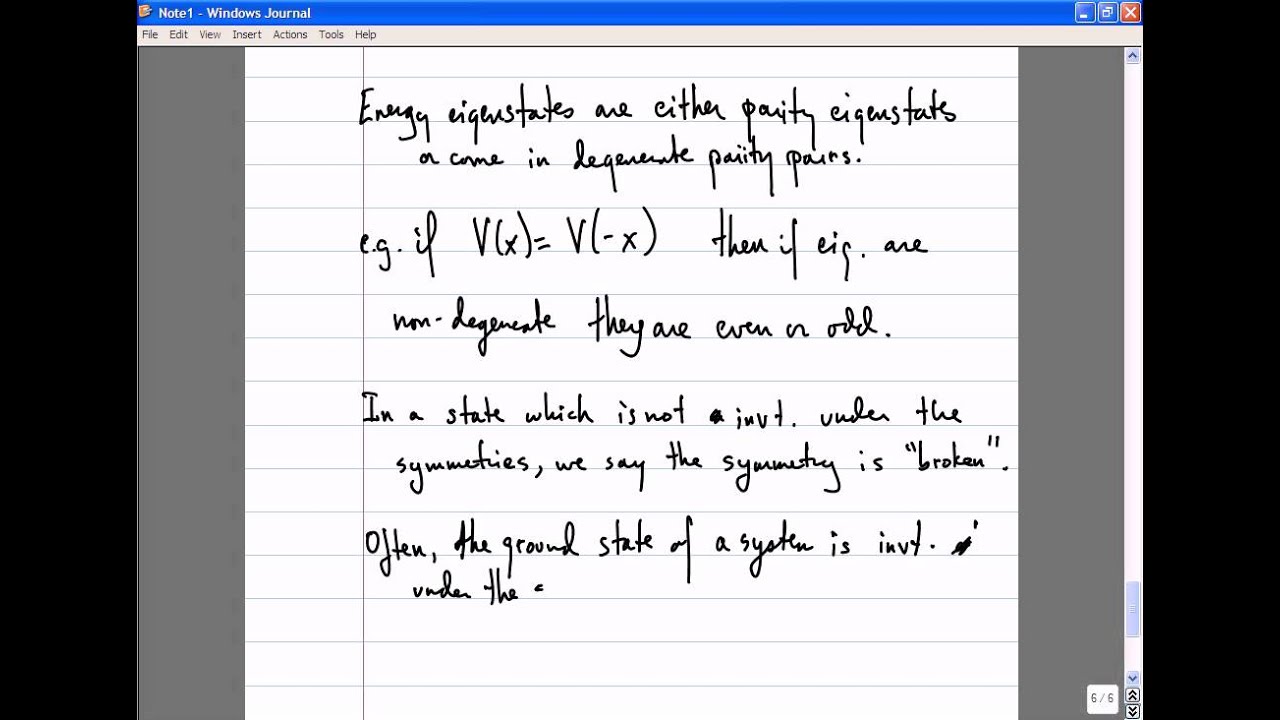 Note1 - Windows Journal
File Edit View Insert Actions Tools Help
Energy eigenstates are either parity eigenstates
or come in degenerate parity pairs.
e.g. if V(x)= V(-x) then if eig. are
non-degenerate they are even or odd.
In a state which is not invt. under the
symmetries, we say the symmetry is "broken".
Often, the ground state of a system is invt.
under the
6 / 6